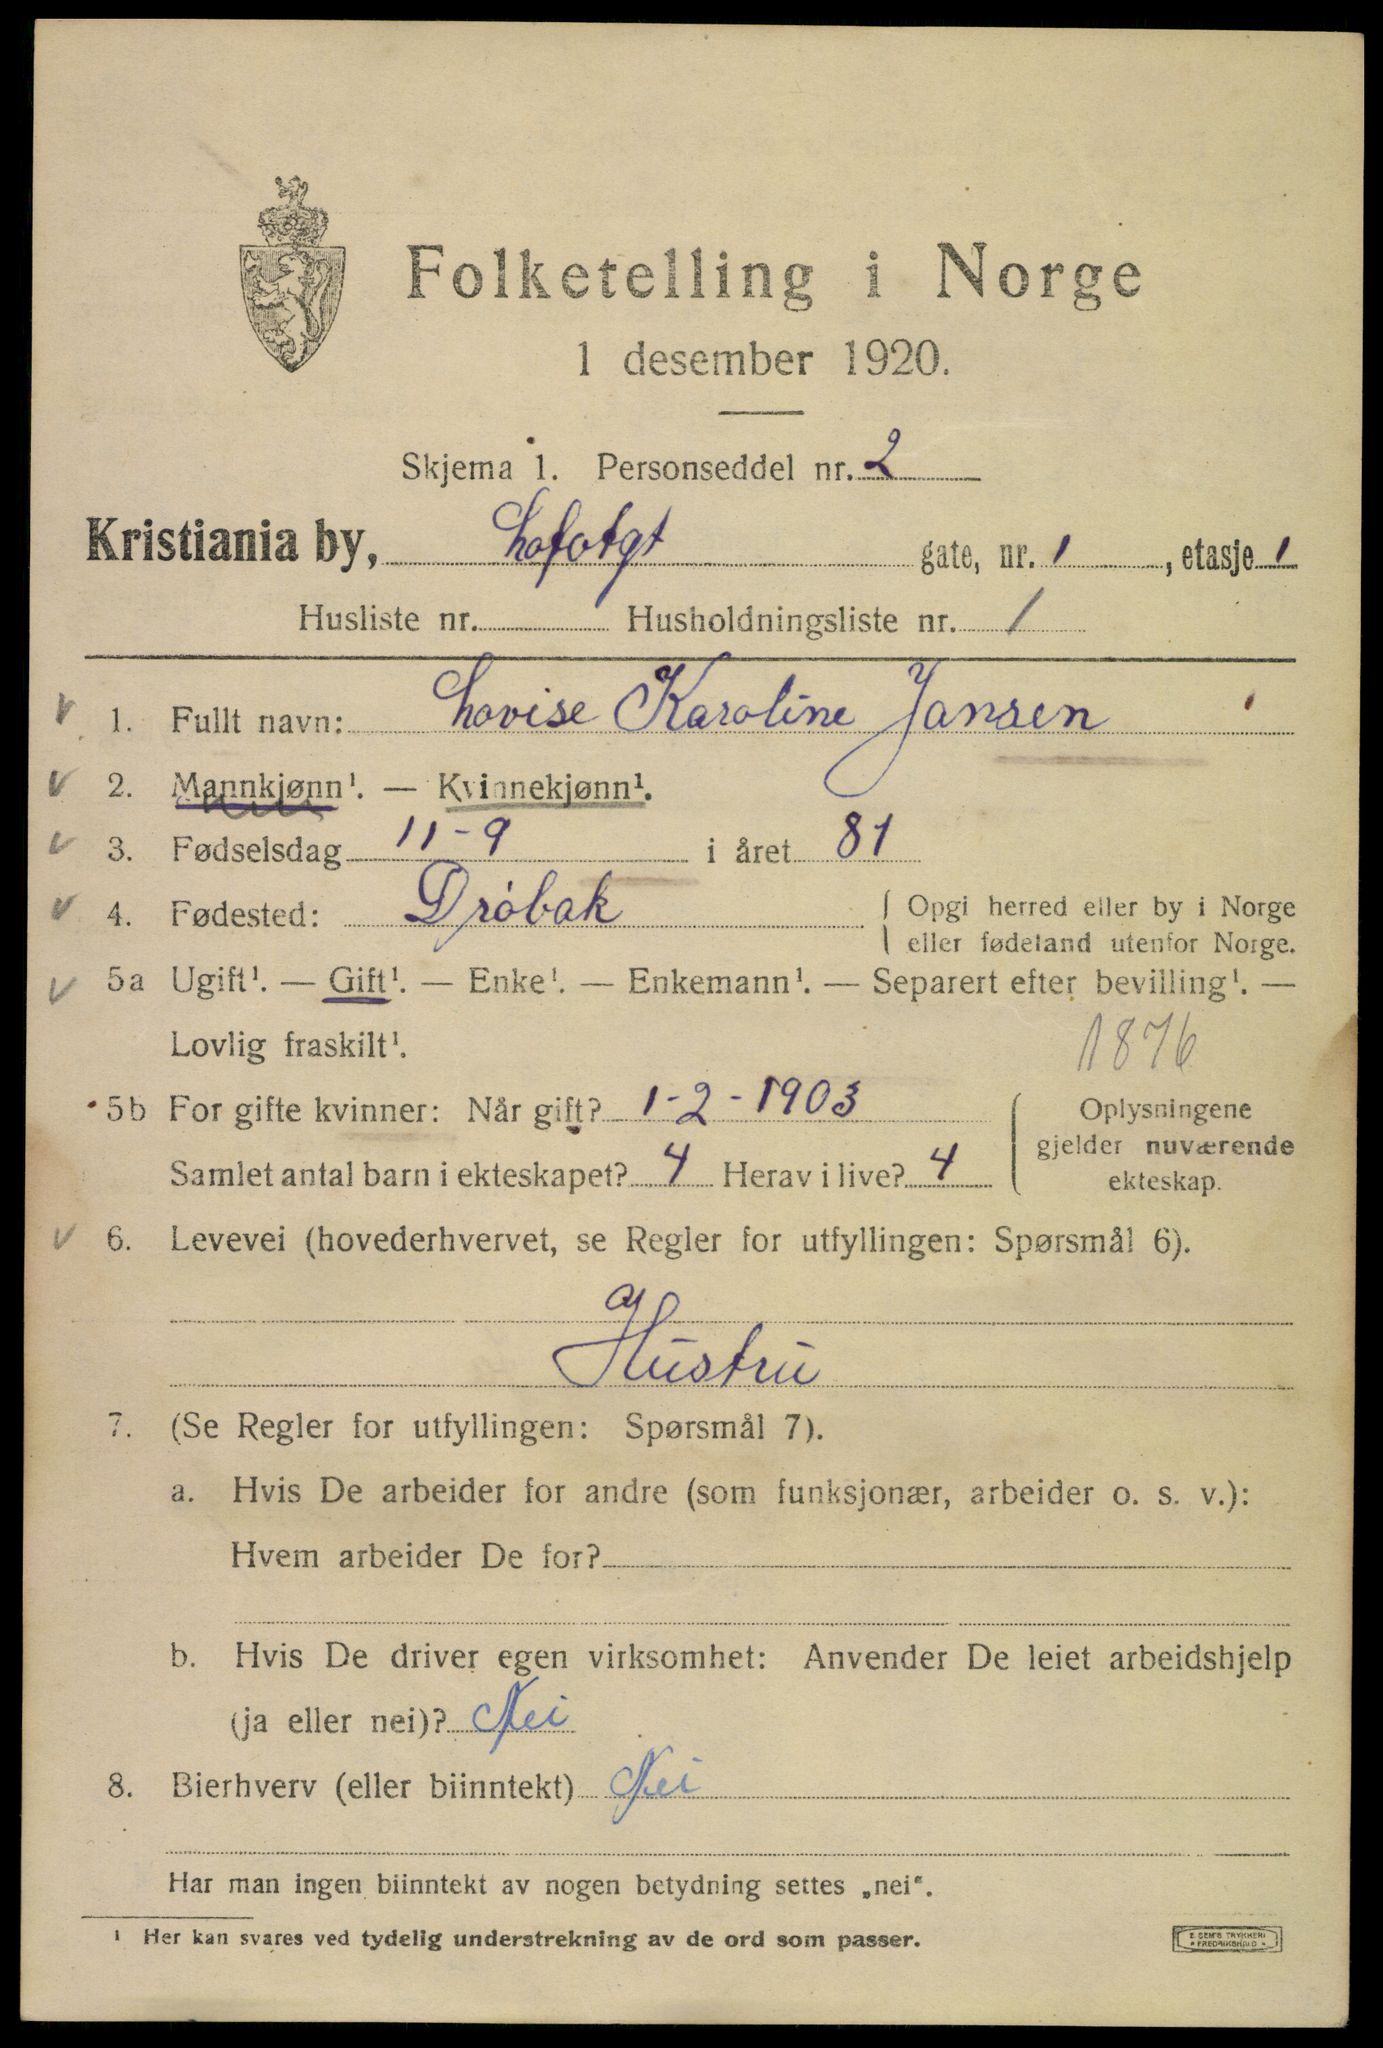 Folketelling i Norge
1 desember 1920.
Skjema 1. Personseddel nr. 2
Kristiania by, Lofotgt gate, nr. 1, etasje 1
Husliste nr. Husholdningsliste nr. 1
1. Fullt navn: Lovise Karoline Jansen
2. Mannkjønn¹. — Kvinnekjønn¹.
3. Fødselsdag 11-9 i året 81
4. Fødested: Drøbak { Opgi herred eller by i Norge
eller fødeland utenfor Norge.
5a Ugift¹. — Gift¹. — Enke¹. — Enkemann¹. — Separert efter bevilling¹. —
Lovlig fraskilt¹. 1876
5b For gifte kvinner: Når gift? 1-2-1903 Oplysningene
gjelder nuværende
Samlet antal barn i ekteskapet? 4 Herav i live? 4 ekteskap.
6. Levevei (hovederhvervet, se Regler for utfyllingen: Spørsmål 6).
Hustru
7. (Se Regler for utfyllingen: Spørsmål 7).
a. Hvis De arbeider for andre (som funksjonær, arbeider o. s. v.):
Hvem arbeider De for?
b. Hvis De driver egen virksomhet: Anvender De leiet arbeidshjelp
(ja eller nei)? Nei
8. Bierhverv (eller biinntekt) Nei
Har man ingen biinntekt av nogen betydning settes „nei“.
¹ Her kan svares ved tydelig understrekning av de ord som passer.
E. SEM'S TRYKKERI
FREDRIKSHALD